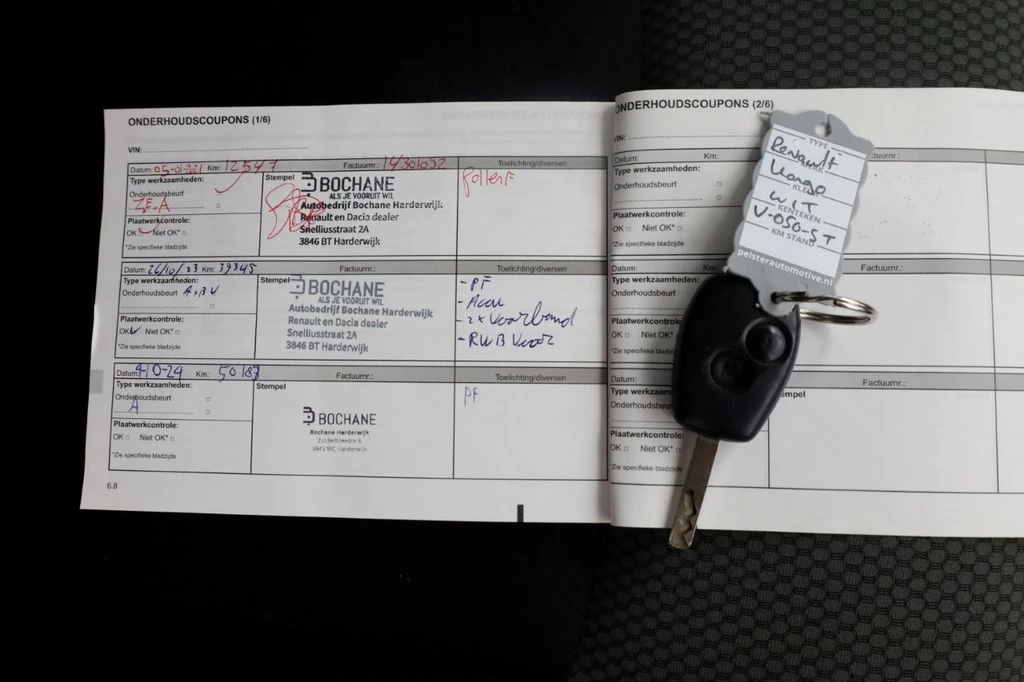 ONDERHOUDSCOUPONS (1/6)
VIN:
Datum: 05-01-221 Km: 12547 Factuurnr.: 14301052 Toelichting/diversen
Type werkzaamheden: Stempel
Onderhoudsbeurt
ZE.A
Plaatwerkcontrole:
OK Niet OK*
*Zie specifieke bladzijde
BOCHANE
ALS JE VOORUIT WIL
Autobedrijf Bochane Harderwijk
Renault en Dacia dealer
Snelliusstraat 2A
3846 BT Harderwijk
PollenF
Datum: 26/10/23 Km: 39345 Factuurnr.: Toelichting/diversen
Type werkzaamheden: Stempel
Onderhoudsbeurt
Plaatwerkcontrole:
OK Niet OK*
*Zie specifieke bladzijde
BOCHANE
ALS JE VOORUIT WIL
Autobedrijf Bochane Harderwijk
Renault en Dacia dealer
Snelliusstraat 2A
3846 BT Harderwijk
- PF
- Accu
- 2x Voorband
- RWB Voor
Datum: 4-10-24 Km: 50187 Factuurnr.: Toelichting/diversen
Type werkzaamheden: Stempel
Onderhoudsbeurt
A
Plaatwerkcontrole:
OK Niet OK*
*Zie specifieke bladzijde
BOCHANE
Bochane Harderwijk
Zuiderbreedte 6
3845 MC Harderwijk
PF
6.8
ONDERHOUDSCOUPONS (2/6)
VIN:
Datum: Km: Factuurnr.:
Type werkzaamheden:
Onderhoudsbeurt
Plaatwerkcontrole:
OK Niet OK*
*Zie specifieke bladzijde
Datum: Factuurnr.:
Type werkzaamheden
Onderhoudsbeurt
Plaatwerkcontrole
OK Niet OK
*Zie specifieke bladzijde
Datum: Factuurnr.:
Type werkzaam empel
Onderhoudsbeurt
Plaatwerkcontrole:
OK Niet OK*
*Zie specifieke bladzijde
TYPE
Renault
MERK
Kango
KLEUR
WIT
KENTEKEN
V-050-ST
KM STAND
pelsterautomotive.nl